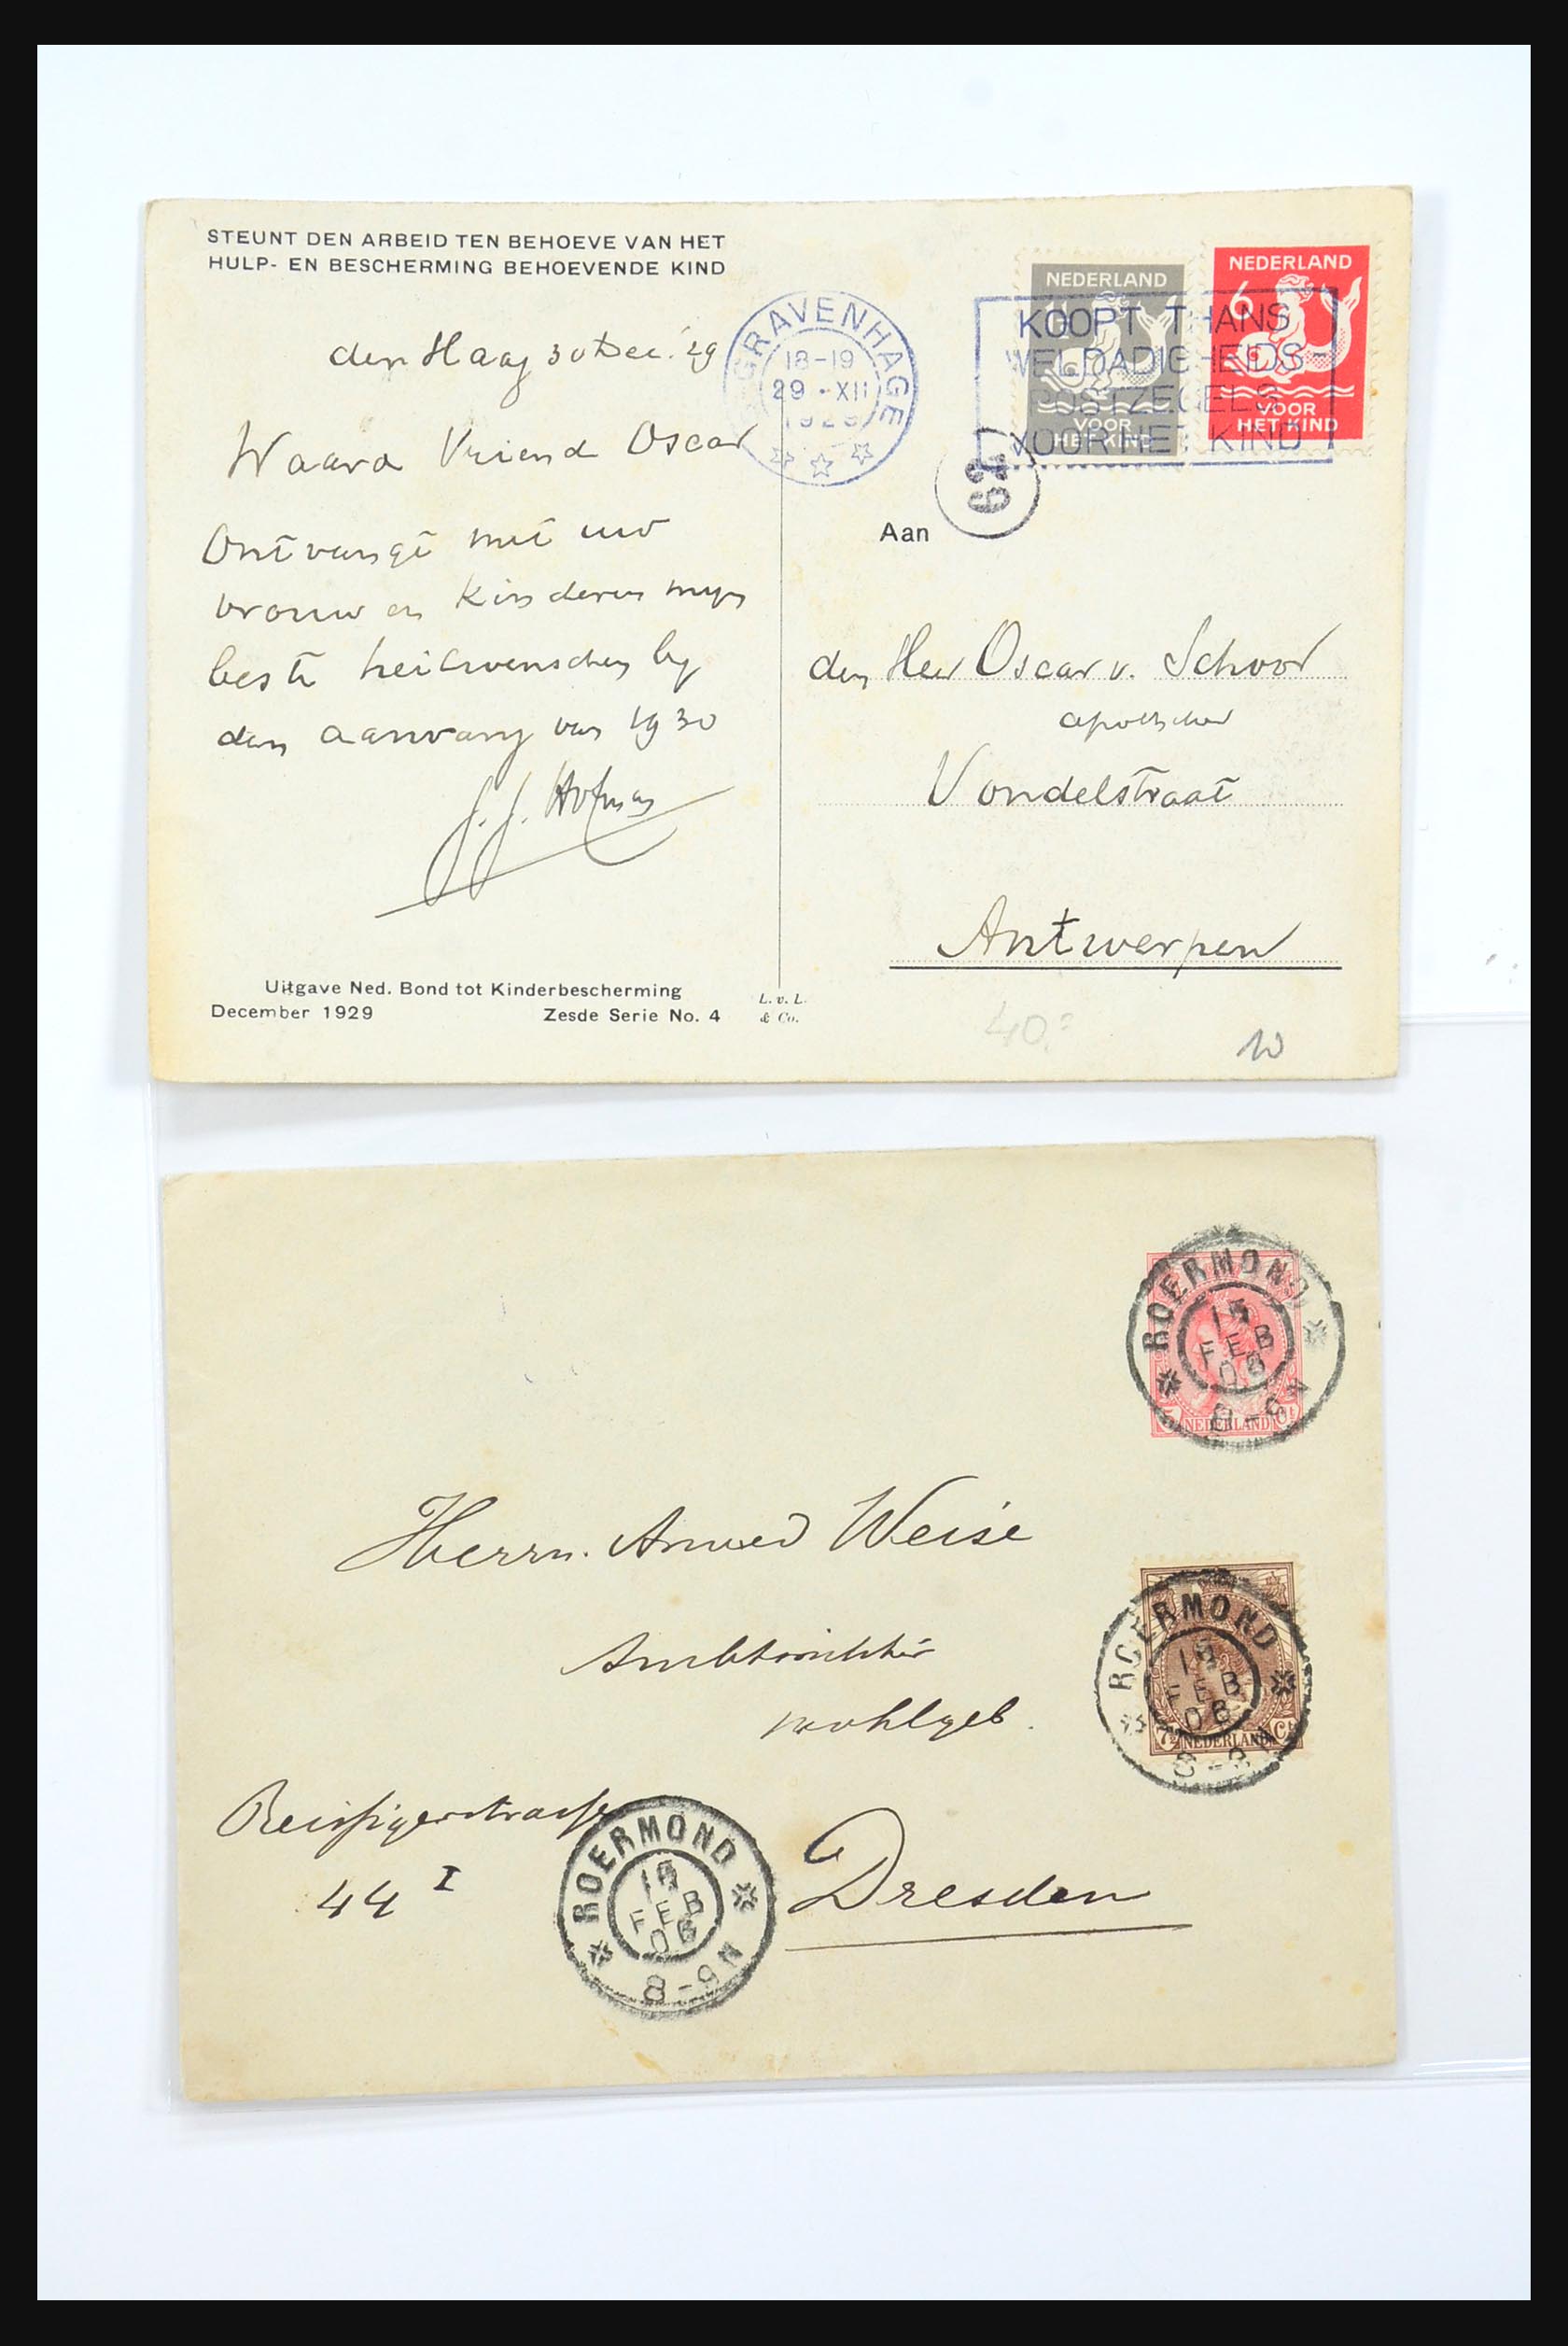 STEUNT DEN ARBEID TEN BEHOEVE VAN HET
HULP- EN BESCHERMING BEHOEVENDE KIND
den Haag 30 Dec. '29
Waarde Vriend Oscar
Ontvangt met uw
vrouw en kinderen mijn
beste heilwenschen bij
den aanvang van 1930
J. J. Hofman
Uitgave Ned. Bond tot Kinderbescherming
December 1929 Zesde Serie No. 4
L. v. L.
& Co.
GRAVENHAGE
18-19
29 - XII
1929
KOOPT THANS
WELDADIGHEIDS-
POSTZEGELS
VOOR HET KIND
NEDERLAND
VOOR
HET KIND
NEDERLAND
6
VOOR
HET KIND
29
Aan
den Heer Oscar v. Schoor
apotheker
Vondelstraat
Antwerpen
40.=
10
ROERMOND
15
FEB
06
8-9N
5 NEDERLAND Ct
Herrn. Weise
Amtsrichter
wohlgeb.
ROERMOND
15
FEB
06
8-9N
7½ NEDERLAND Ct
Reissigerstrasse
44 I
ROERMOND
15
FEB
06
8-9N
Dresden